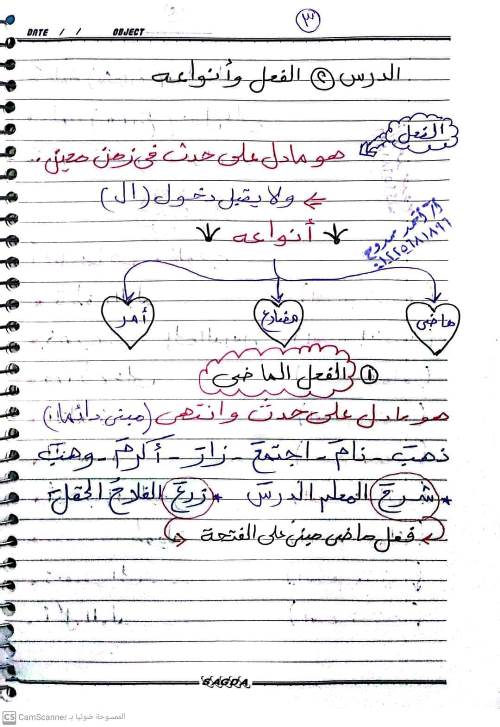 ٣
DATE / / OBJECT
الدرس ٢ الفعل وأنواعه
الفعل
هو ما دل على حدث في زمن معين.
ولا يقبل دخول (ال)
أنواعه
ماضى مضارع أمر
١ الفعل الماضى
هو ما دل على حدث وانتهى (مبنى دائمًا)
ذهبَ - نامَ - اجتمعَ - زارَ - أكرمَ - وهبَ
* شرحَ المعلم الدرس * زرعَ الفلاح الحقل
فعل ماضى مبنى على الفتحة
SAGDA
الممسوحة ضوئيا بـ CamScanner
CS